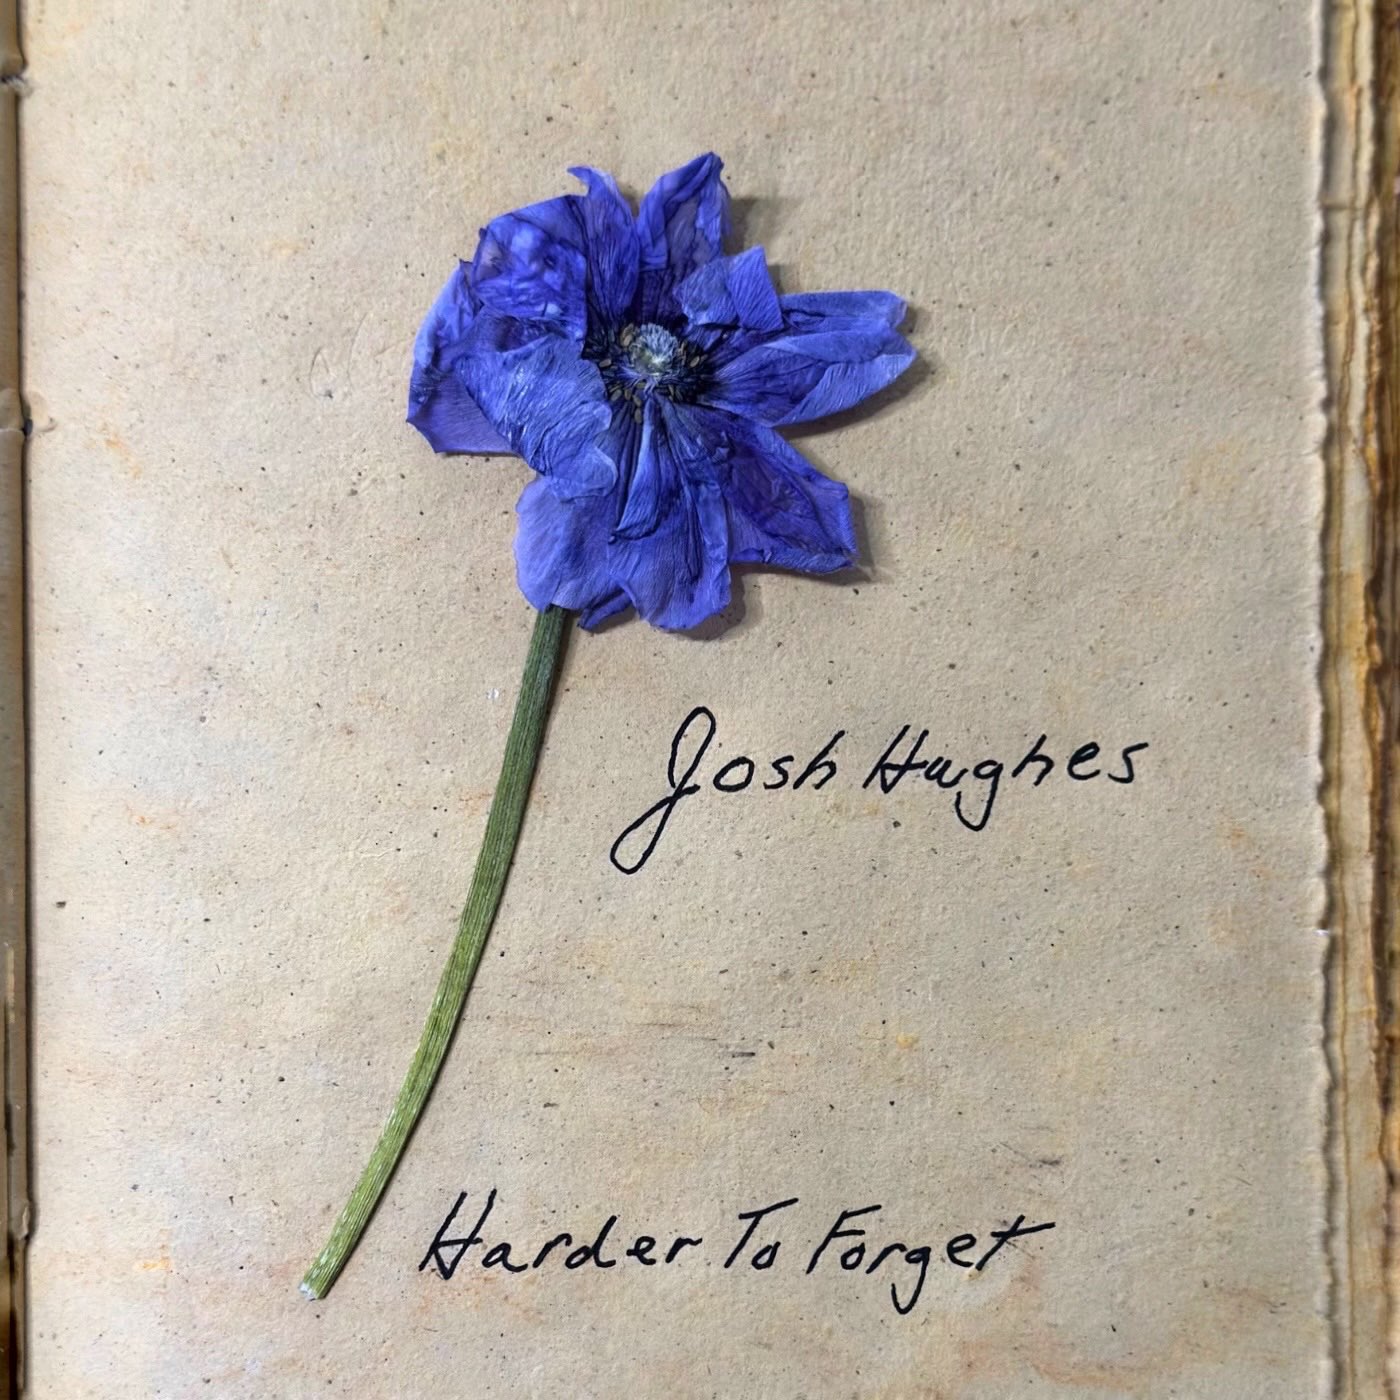 Josh Hughes
Harder To Forget